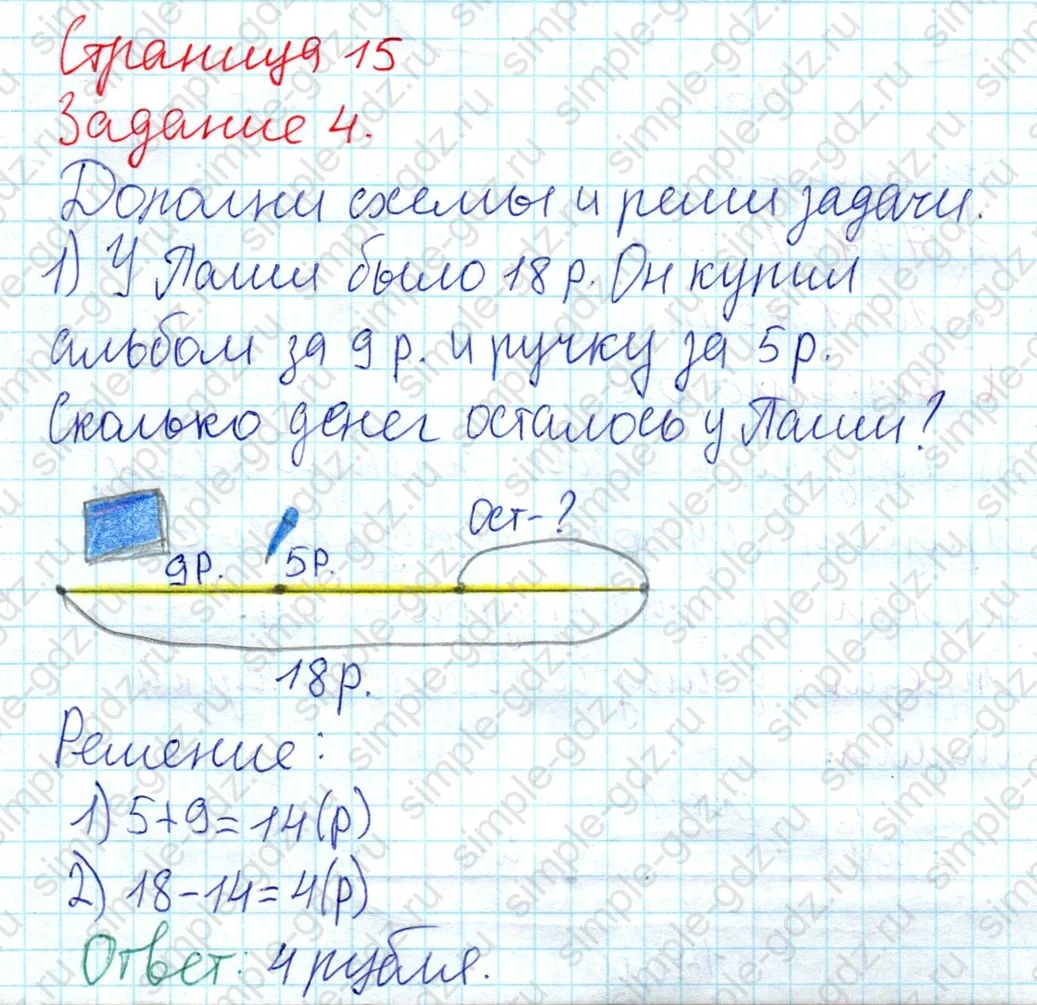 Страница 15
Задание 4.
Дополни схемы и реши задачи.
1) У Паши было 18 р. Он купил
альбом за 9 р. и ручку за 5 р.
Сколько денег осталось у Паши?
ост-?
9р. 5р.
18р.
Решение:
1) 5+9=14(р)
2) 18-14=4(р)
Ответ: 4 рубля.
simple-gdz.ru